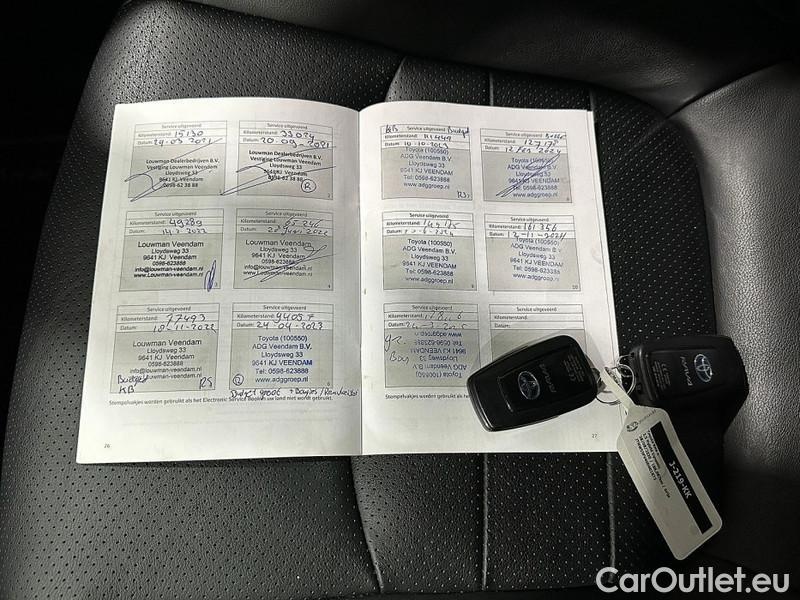 Service uitgevoerd
Kilometerstand: 15130
Datum: 29-03-2021
Louwman Dealerbedrijven B.V.
Vestiging Louwman Veendam
Lloydsweg 33
9641 KJ Veendam
0598-62 38 88
Service uitgevoerd
Kilometerstand: 33024
Datum: 20-09-2021
Louwman Dealerbedrijven B.V.
Vestiging Louwman Veendam
Lloydsweg 33
9641 KJ Veendam
0598-62 38 88
R
2
Service uitgevoerd
Kilometerstand: 49289
Datum:
Louwman Veendam
Lloydsweg 33
9641 KJ Veendam
0598-623888
info@louwman-veendam.nl
www.louwman-veendam.nl
3
Service uitgevoerd
Kilometerstand:
Datum: 28 Juni 2022
Louwman Veendam
Lloydsweg 33
9641 KJ Veendam
0598-623888
info@louwman-veendam.nl
www.Louwman-Veendam.nl
4
Service uitgevoerd
Kilometerstand: 77493
Datum: 18-11-2022
Louwman Veendam
Lloydsweg 33
9641 KJ Veendam
0598-623888
info@louwman-veendam.nl
www.Louwman-Veendam.nl
Budget
KB
RS
Service uitgevoerd
Kilometerstand: 94057
Datum: 24-04-2023
Toyota (100550)
ADG Veendam B.V.
Lloydsweg 33
9641 KJ VEENDAM
Tel: 0598-623888
www.adggroep.nl
R
6
Stempelvakjes worden gebruikt als het Electronic Service Book in uw land niet wordt gebruikt.
26
KB
Budget
Service uitgevoerd
Kilometerstand: 111449
Datum: 10-10-2023
Toyota (100550)
ADG Veendam B.V.
Lloydsweg 33
9641 KJ VEENDAM
Tel: 0598-623888
www.adggroep.nl
RS
Service uitgevoerd
Kilometerstand: 127178
Datum: 12 Feb 2024
Toyota (100550)
ADG Veendam B.V.
Lloydsweg 33
9641 KJ VEENDAM
Tel: 0598-623888
www.adggroep.nl
8
Service uitgevoerd
Kilometerstand:
Datum:
Toyota (100550)
ADG Veendam B.V.
Lloydsweg 33
9641 KJ VEENDAM
Tel: 0598-623888
www.adggroep.nl
9
Service uitgevoerd
Kilometerstand: 161356
Datum: 12-11-2024
Toyota (100550)
ADG Veendam B.V.
Lloydsweg 33
9641 KJ VEENDAM
Tel: 0598-623888
www.adggroep.nl
10
Service uitgevoerd
Kilometerstand:
Datum:
Toyota (100550)
ADG Veendam B.V.
Lloydsweg 33
9641 KJ VEENDAM
Tel: 0598-623888
www.adggroep.nl
Service uitgevoerd
Kilometerstand:
Datum:
Stempelvakjes worden gebruikt als het Electronic
27
J-219-KK
CarOutlet.eu